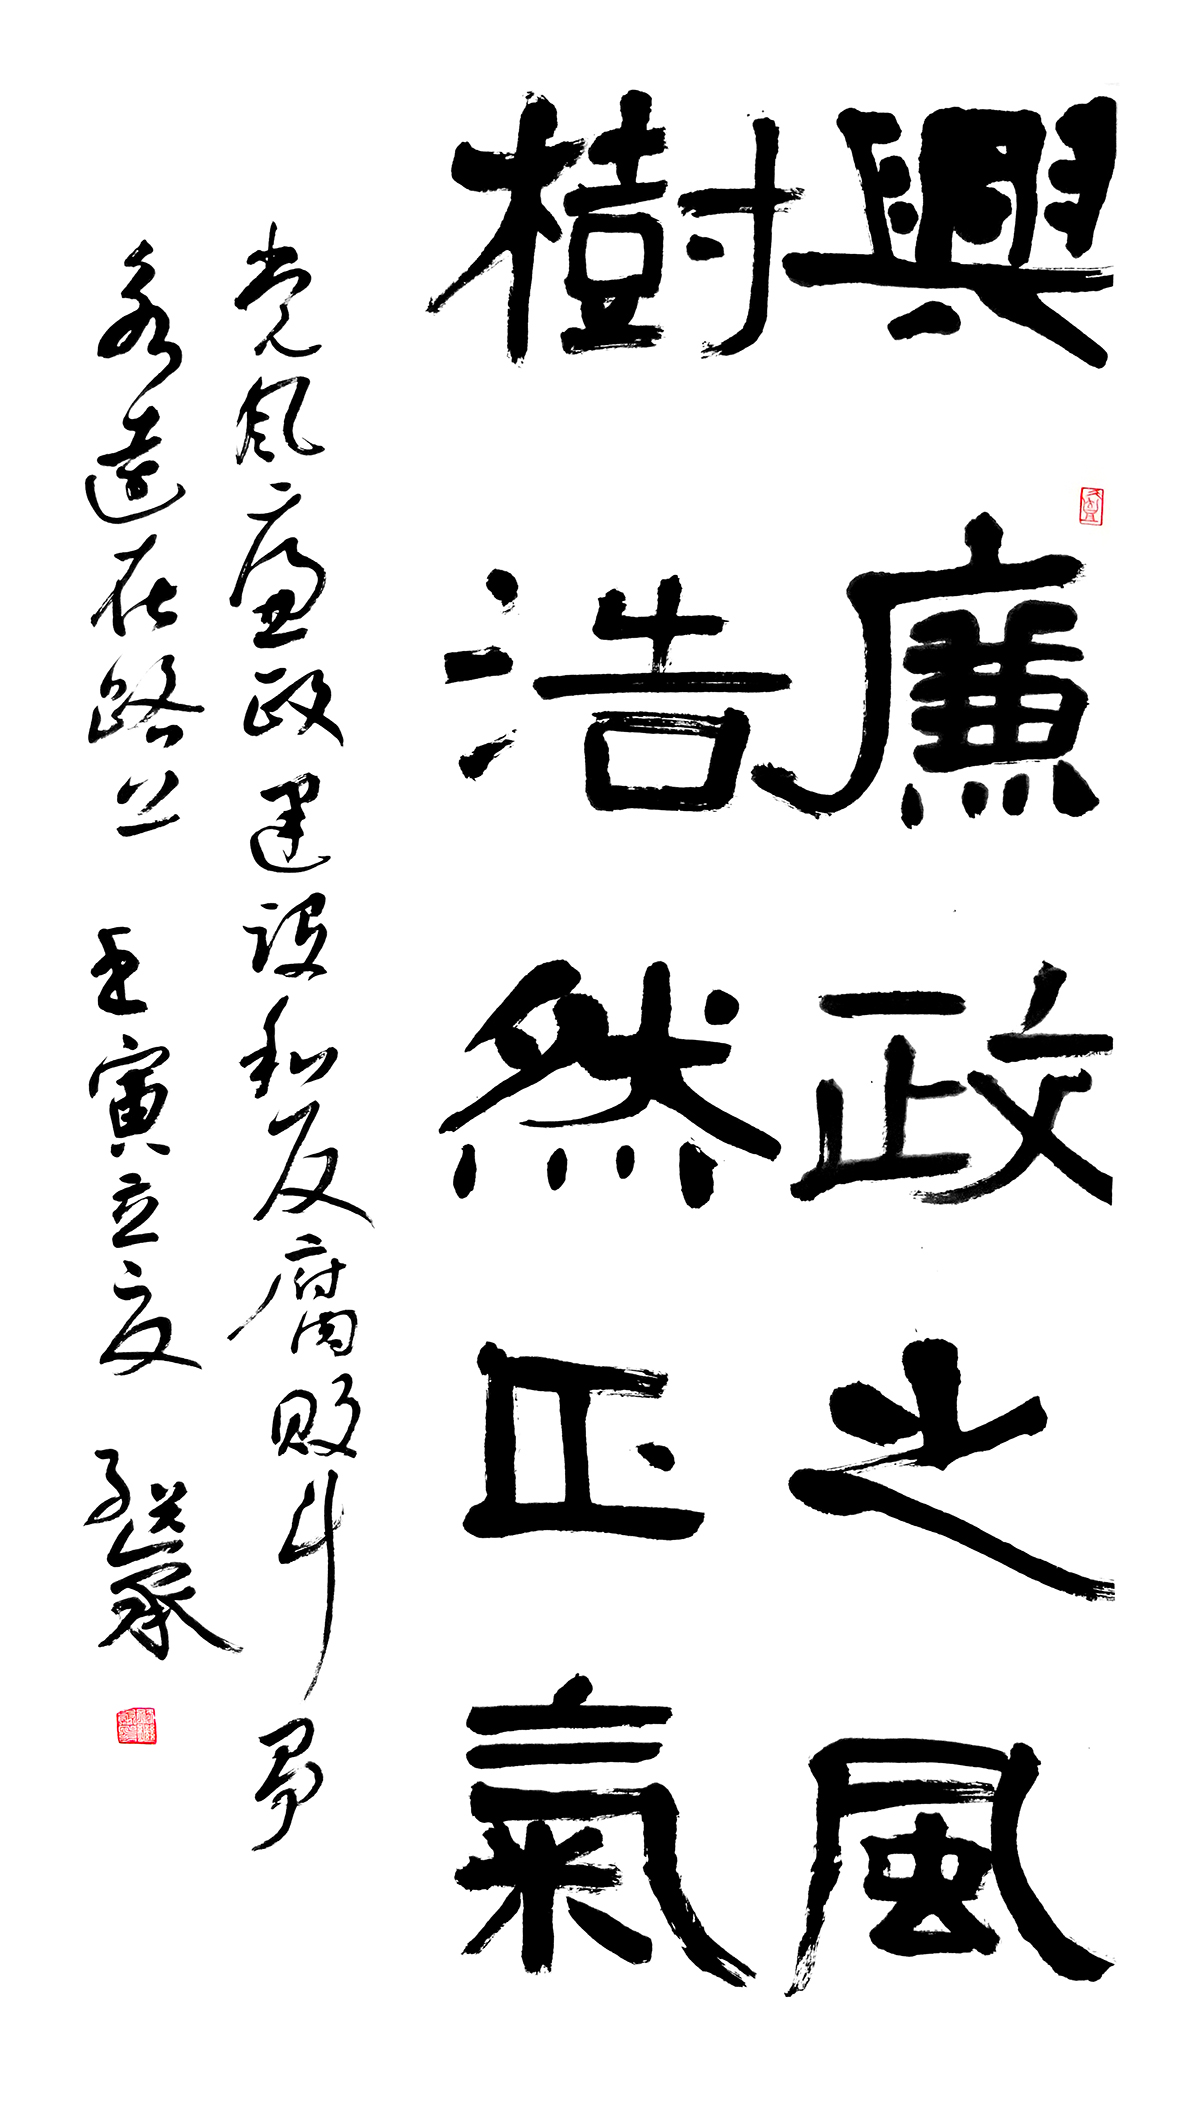 興廉政之風
樹浩然正氣
党风廉政建设和反腐败斗争
永远在路上 壬寅立夏